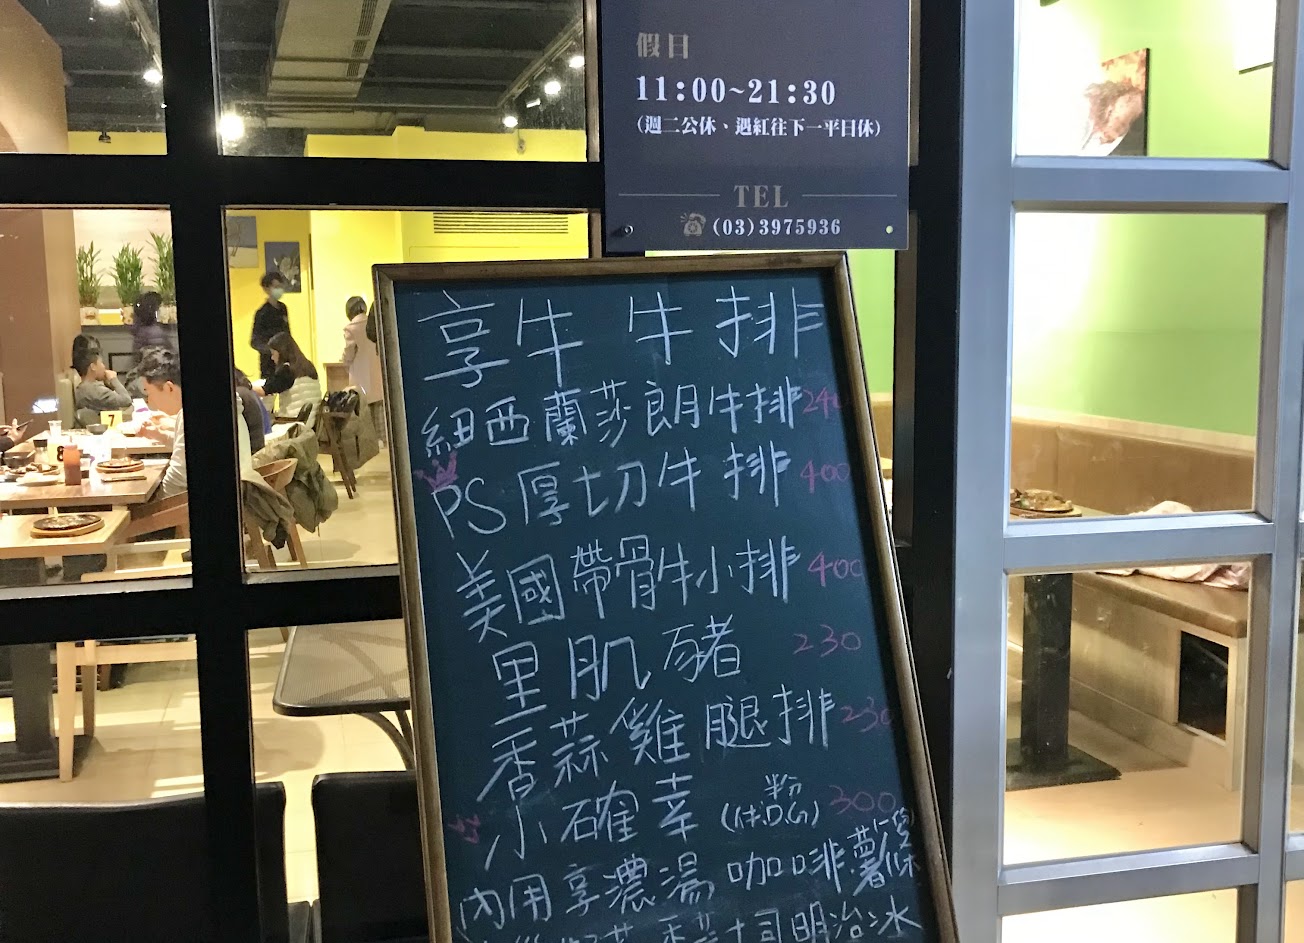 假日
11:00~21:30
(週二公休、遇紅往下一平日休)
TEL
(03)3975936
享牛 牛排
紐西蘭莎朗牛排 240
PS厚切牛排 400
美國帶骨牛小排 400
里肌豬 230
香蒜雞腿排 230
小確幸 300
內用享濃湯 咖啡 薯條
明治冰
7
8